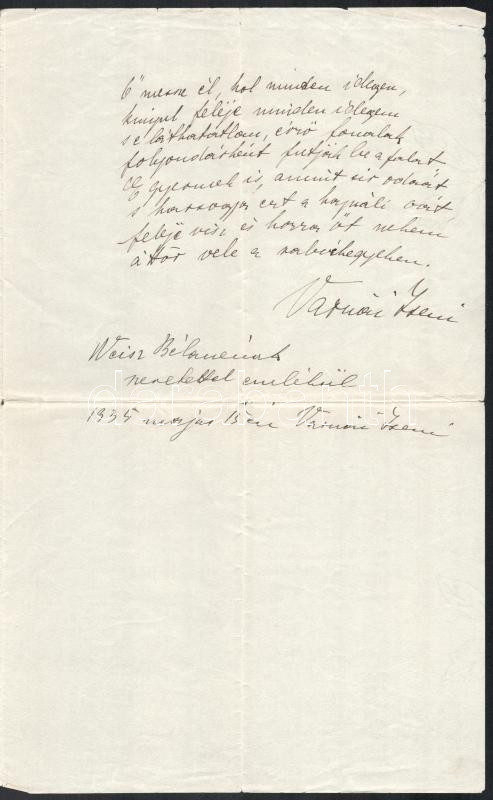 Ő messze él, hol minden idegen,
kinyul feléje minden idegem
s e láthatatlan, érző fonalak
folyondárként futják be a falat
Ez a gyermek is, amint sír odaát
s harsogja ezt a hajnali órát,
feléje visz és hozza őt nekem
áttör vele a hegyeken.
Várnai Zseni
Weisz Bélánénak
szeretettel emlékül
1935 május 15 én Várnai Zseni